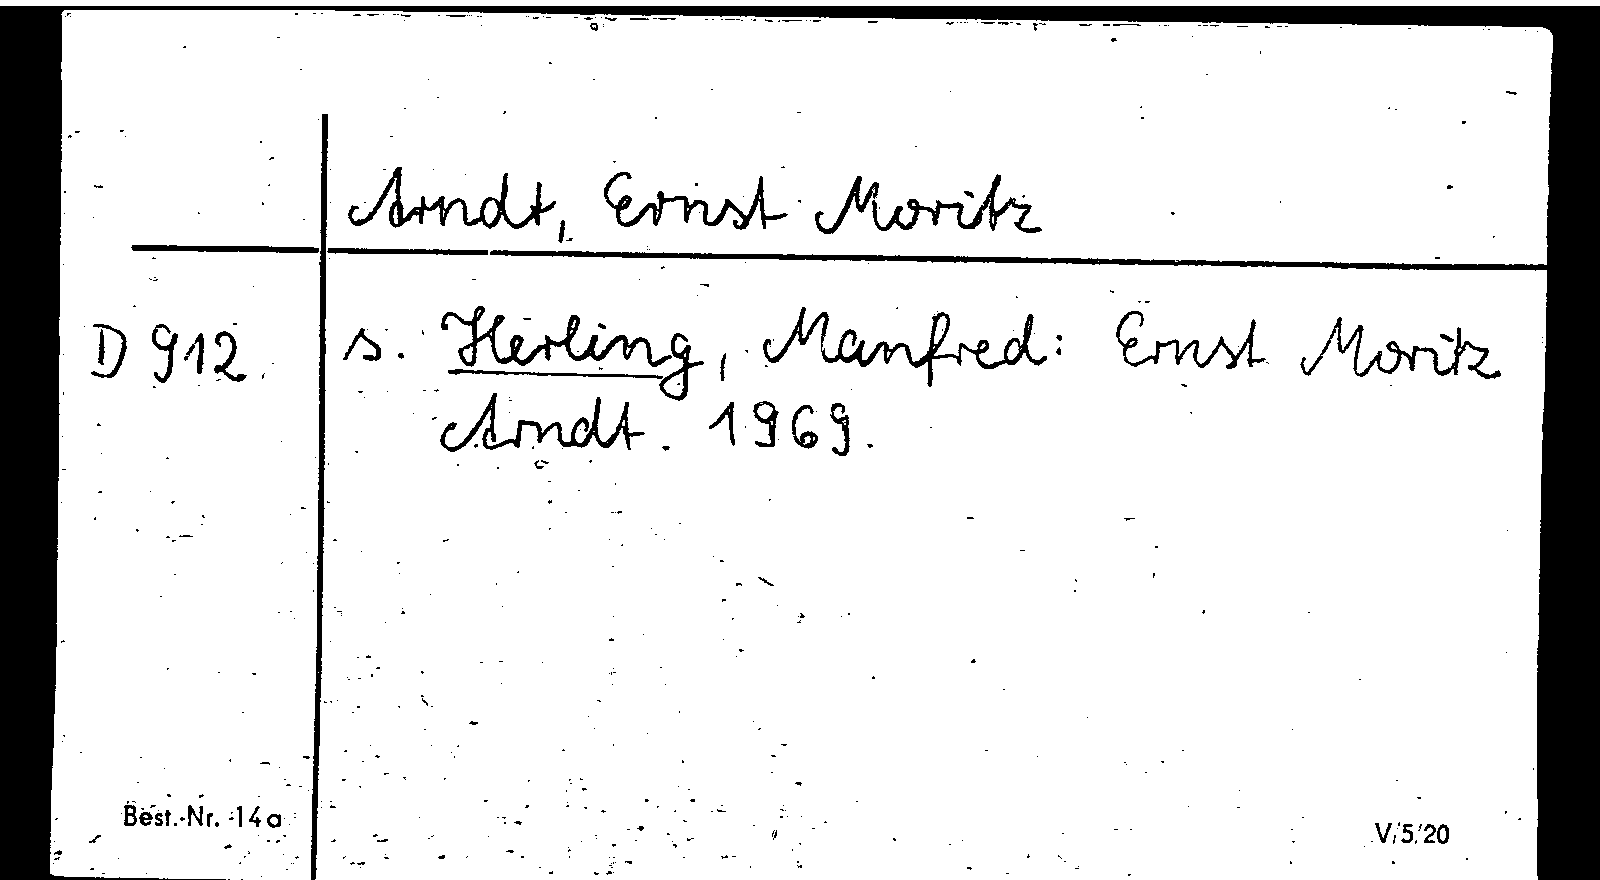 Arndt, Ernst Moritz
D 912 s. Herling, Manfred: Ernst Moritz
Arndt. 1969.
Best.-Nr. 14a
V/5/20